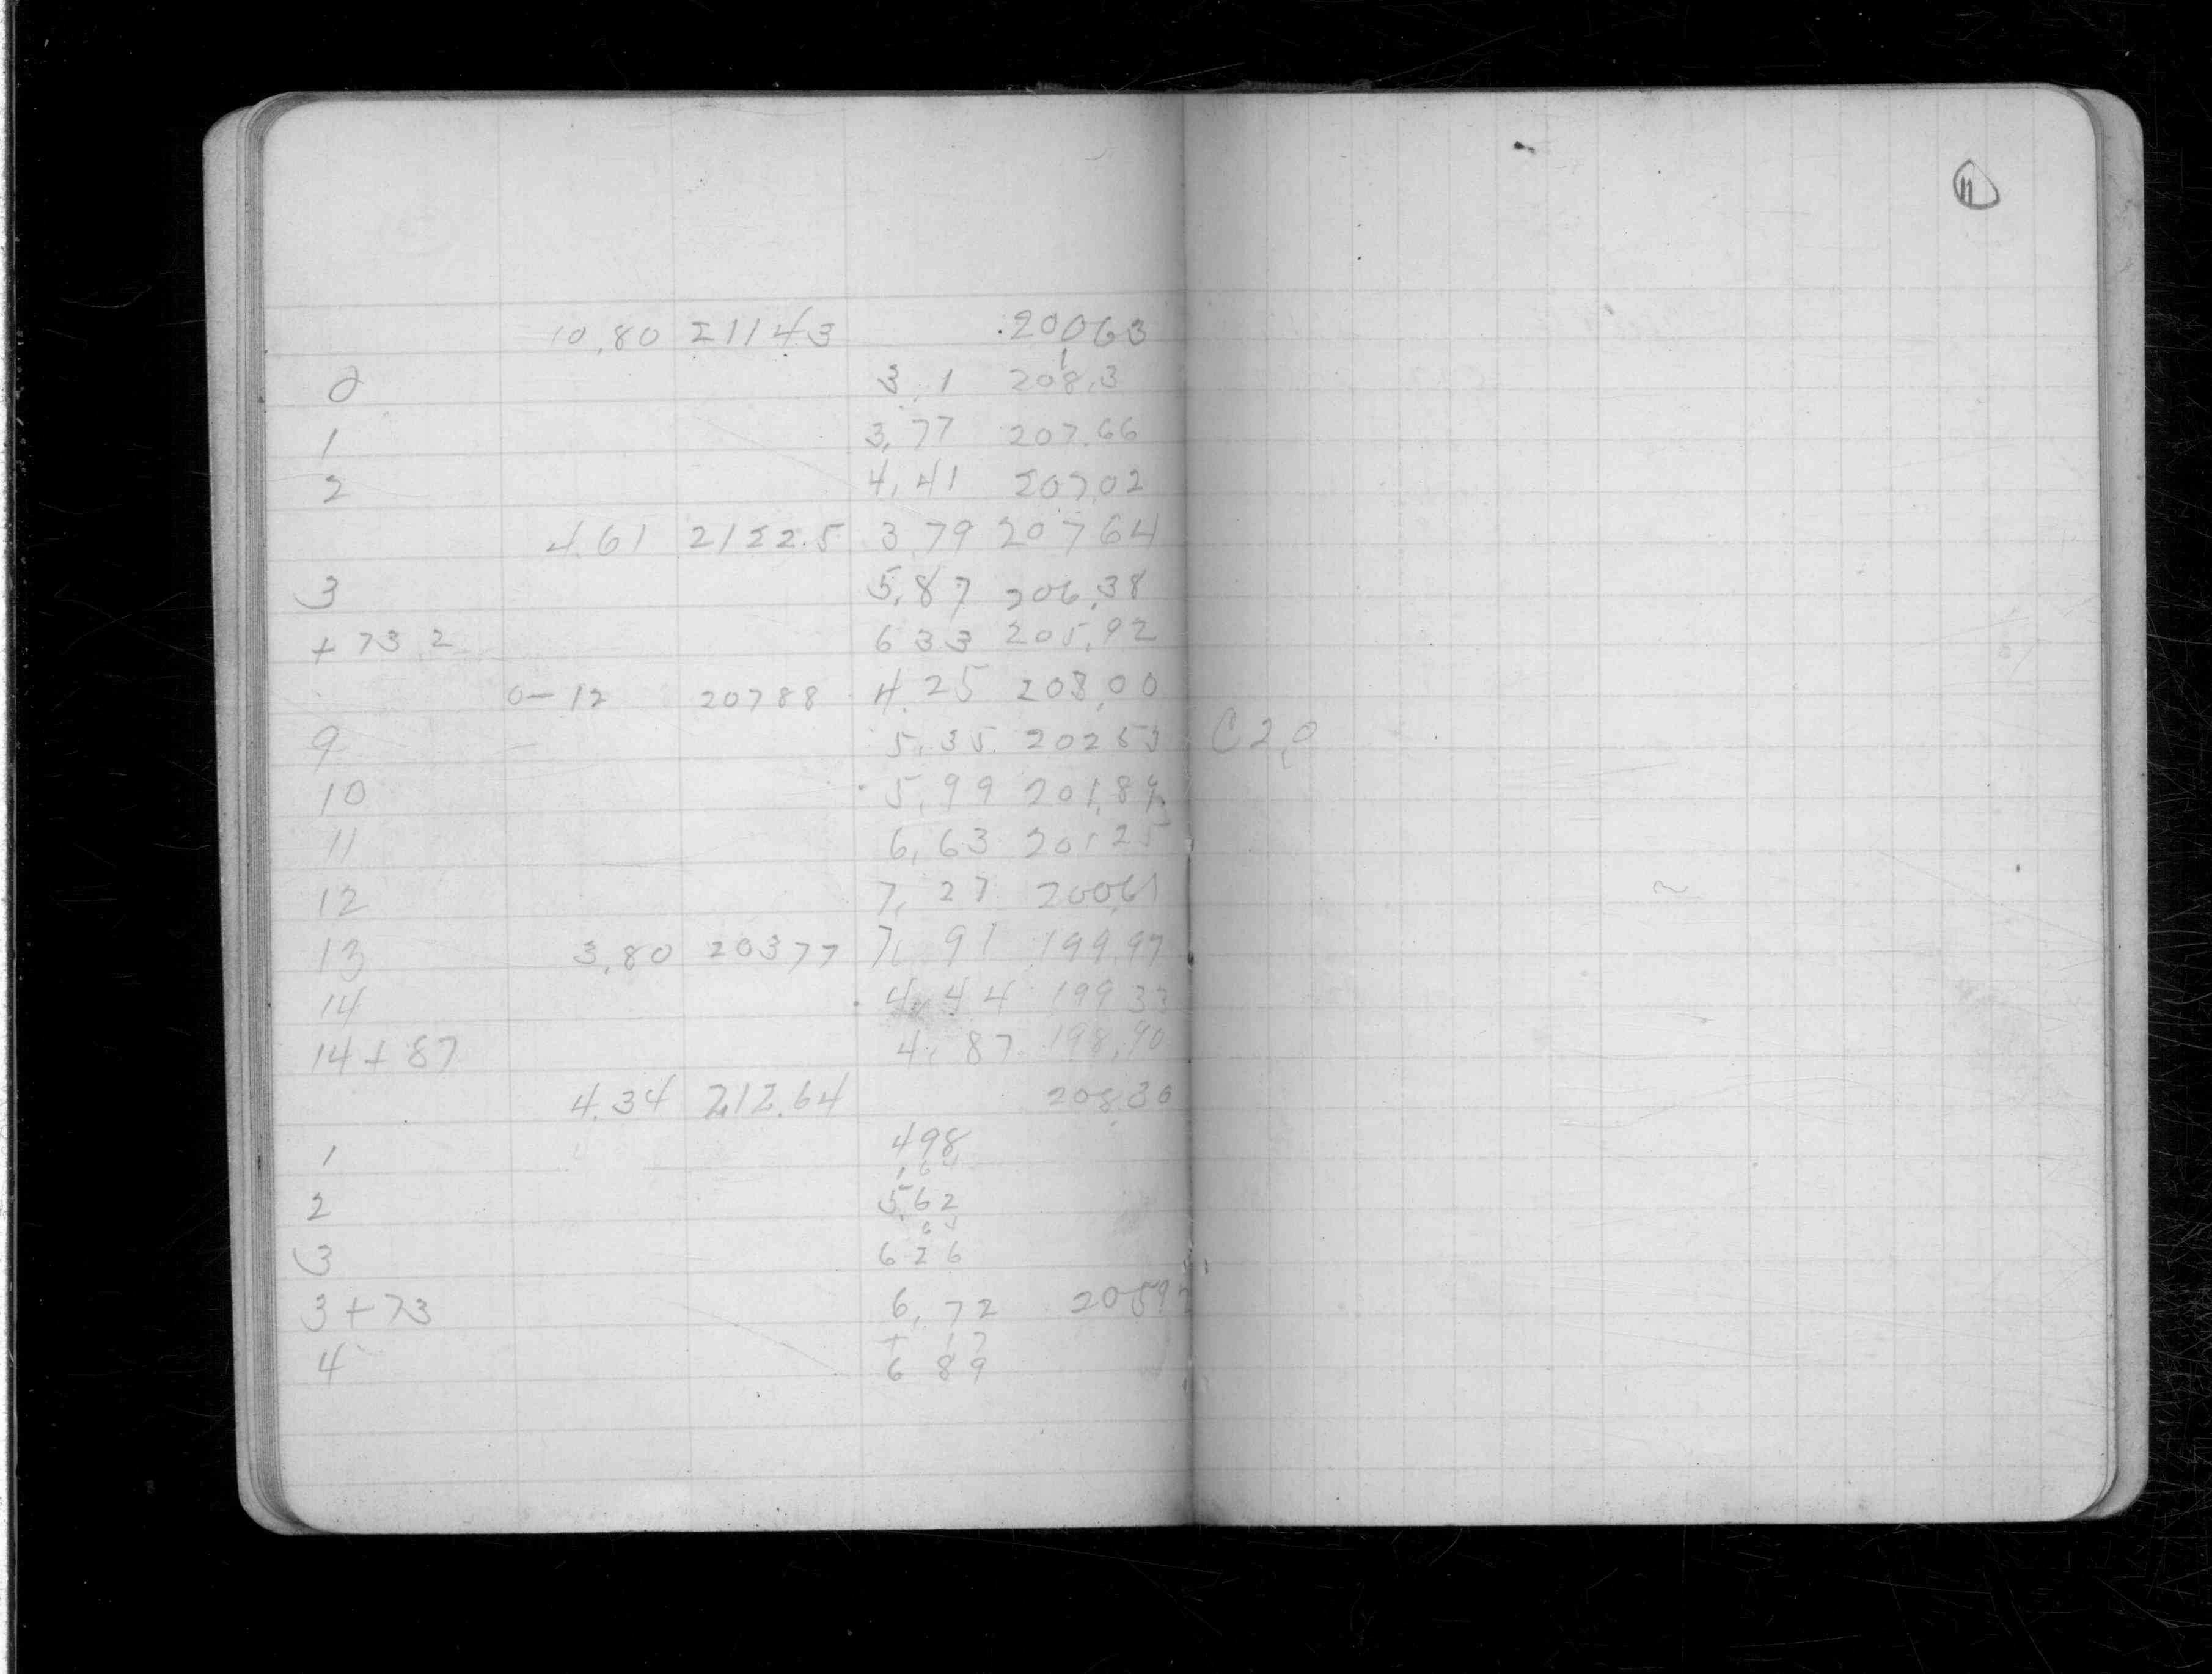 11
10.80 21143 20063
0 3.1 208.3
1 3.77 207.66
2 4.41 207.02
4.61 2122.5 3 79 207 64
3 5.87 206.38
+ 73 2 6 33 205.92
0-12 20788 4.25 208.00
9 5.35 20253 C 2.0
10 5.99 201.89
11 6.63 20125
12 7.27 20061
13 3.80 20377 7.91 199.97
14 4.44 199 33
14 + 87 4.87 198.90
4.34 212.64 208.30
1 498
64
2 5.62
64
3 6 26
3 + 73 6.72 2059
17
4 6 89